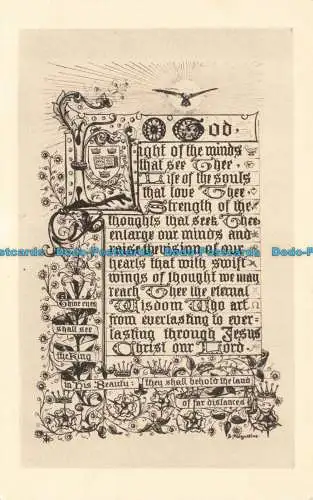 O God,
Light of the minds
that see Thee
Life of the souls
that love Thee
Strength of the
thoughts that seek Thee
enlarge our minds and
raise the vision of our
hearts that with swift
wings of thought we may
reach Thee the eternal
Wisdom Who art
from everlasting to ever-
lasting through Jesus
Christ our Lord.
Thine eyes
shall see
the King
in His Beauty: they shall behold the land
of far distances
S. Augustine
Postcards Dodo-Postcards Dodo-Postcards Dodo-Po